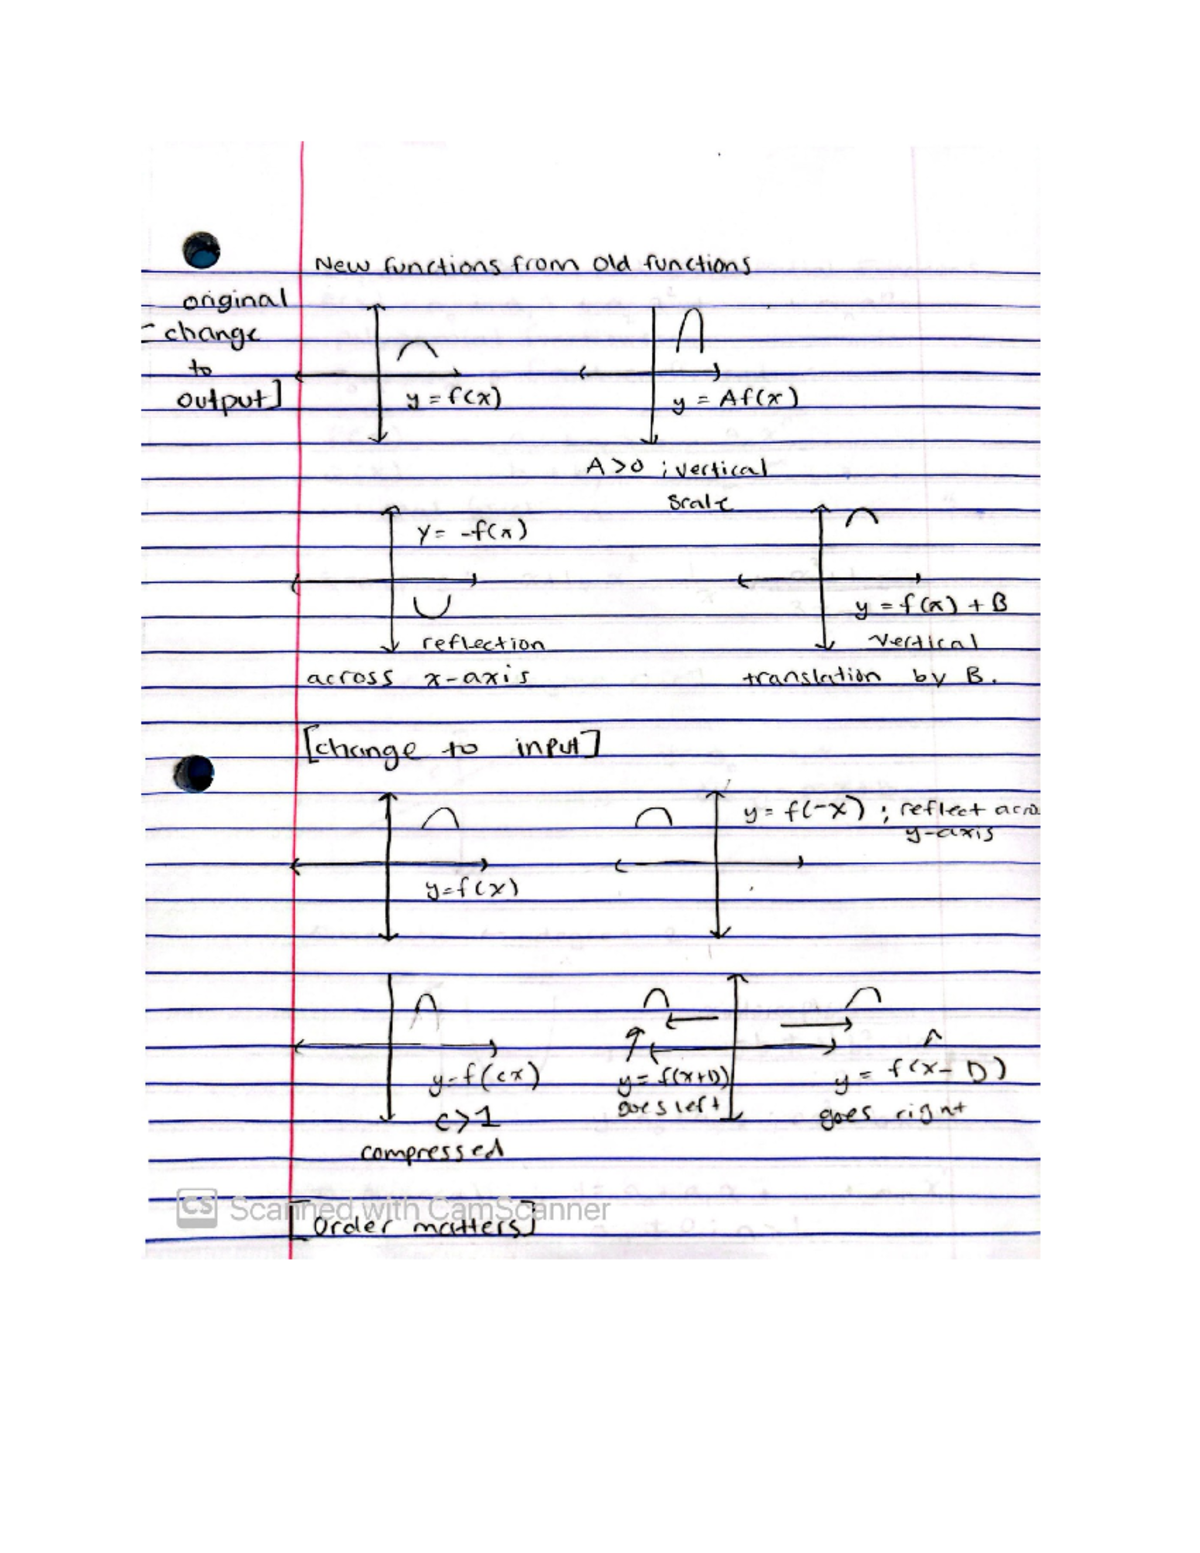 New functions from old functions
original
- change
to
output]
y = f(x)
y = Af(x)
A>0 ; vertical
scale
y = -f(x)
reflection
across x-axis
y = f(x) + B
vertical
translation by B.
[change to input]
y=f(x)
y = f(-x) ; reflect acro
y-axis
y=f(cx)
c>1
compressed
y = f(x+D)
goes left
y = f(x-D)
goes right
CS Scanned with CamScanner
[Order matters]